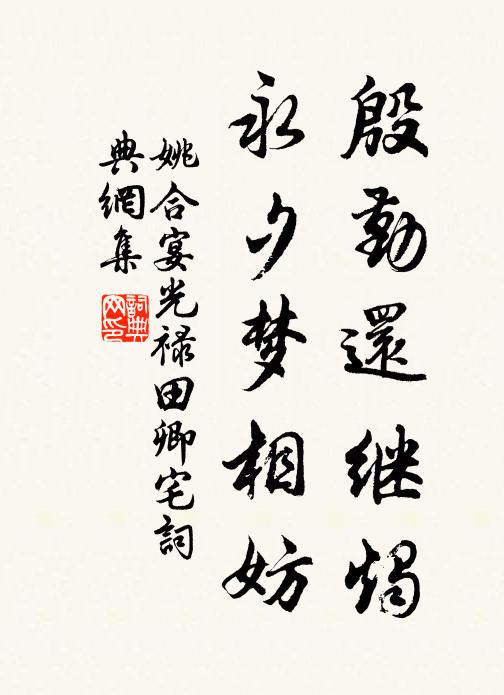 殷勤還继燭
永夕梦相妨
姚合宴光禄田卿宅詞
典網集
詞典
网印